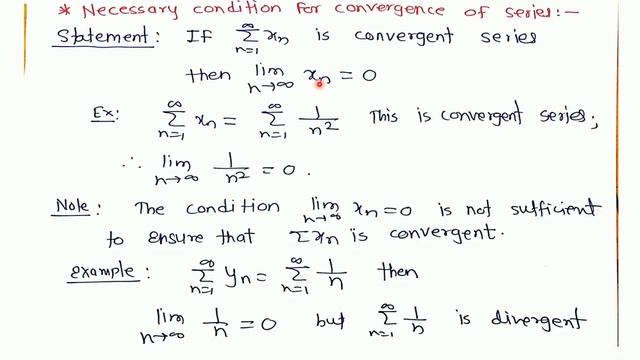 * Necessary condition for convergence of series:-
Statement: If ∑_{n=1}^{∞} xₙ is convergent series
then lim_{n→∞} xₙ = 0
Ex: ∑_{n=1}^{∞} xₙ = ∑_{n=1}^{∞} 1/n² This is convergent series;
∴ lim_{n→∞} 1/n² = 0.
Note: The condition lim_{n→∞} xₙ = 0 is not sufficient
to ensure that Σxₙ is convergent.
Example: ∑_{n=1}^{∞} yₙ = ∑_{n=1}^{∞} 1/n then
lim_{n→∞} 1/n = 0 but ∑_{n=1}^{∞} 1/n is divergent